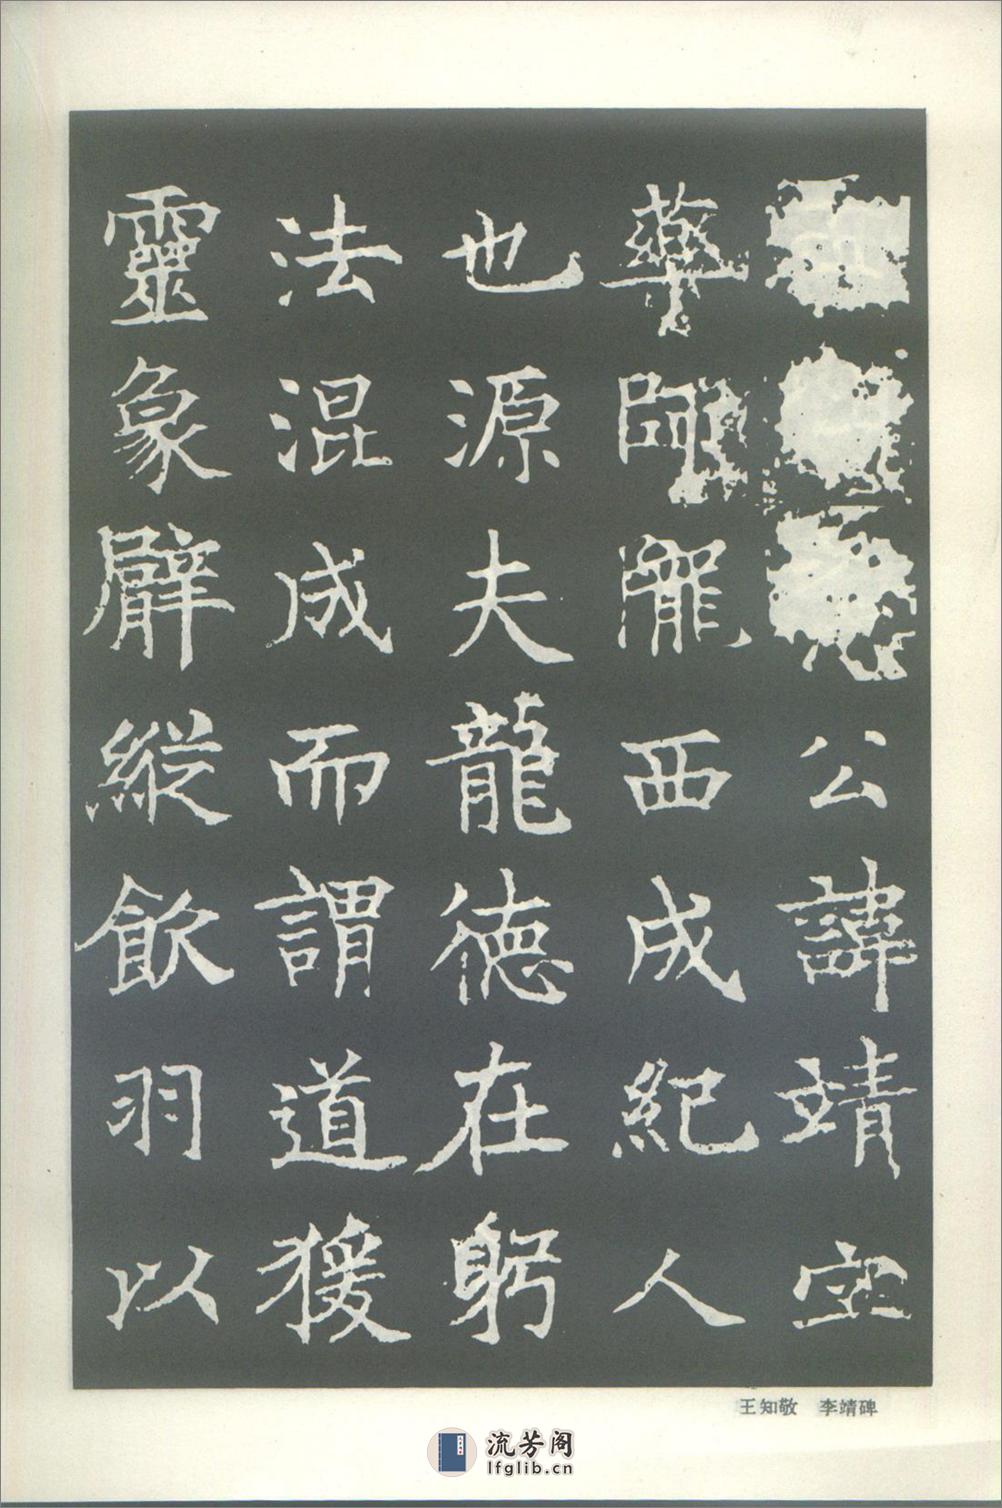 公諱靖字
藥師隴西成紀人
也源夫龍德在躬
法混成而謂道猨
靈象臂縱飲羽以
王知敬 李靖碑
流芳阁
lfglib.cn